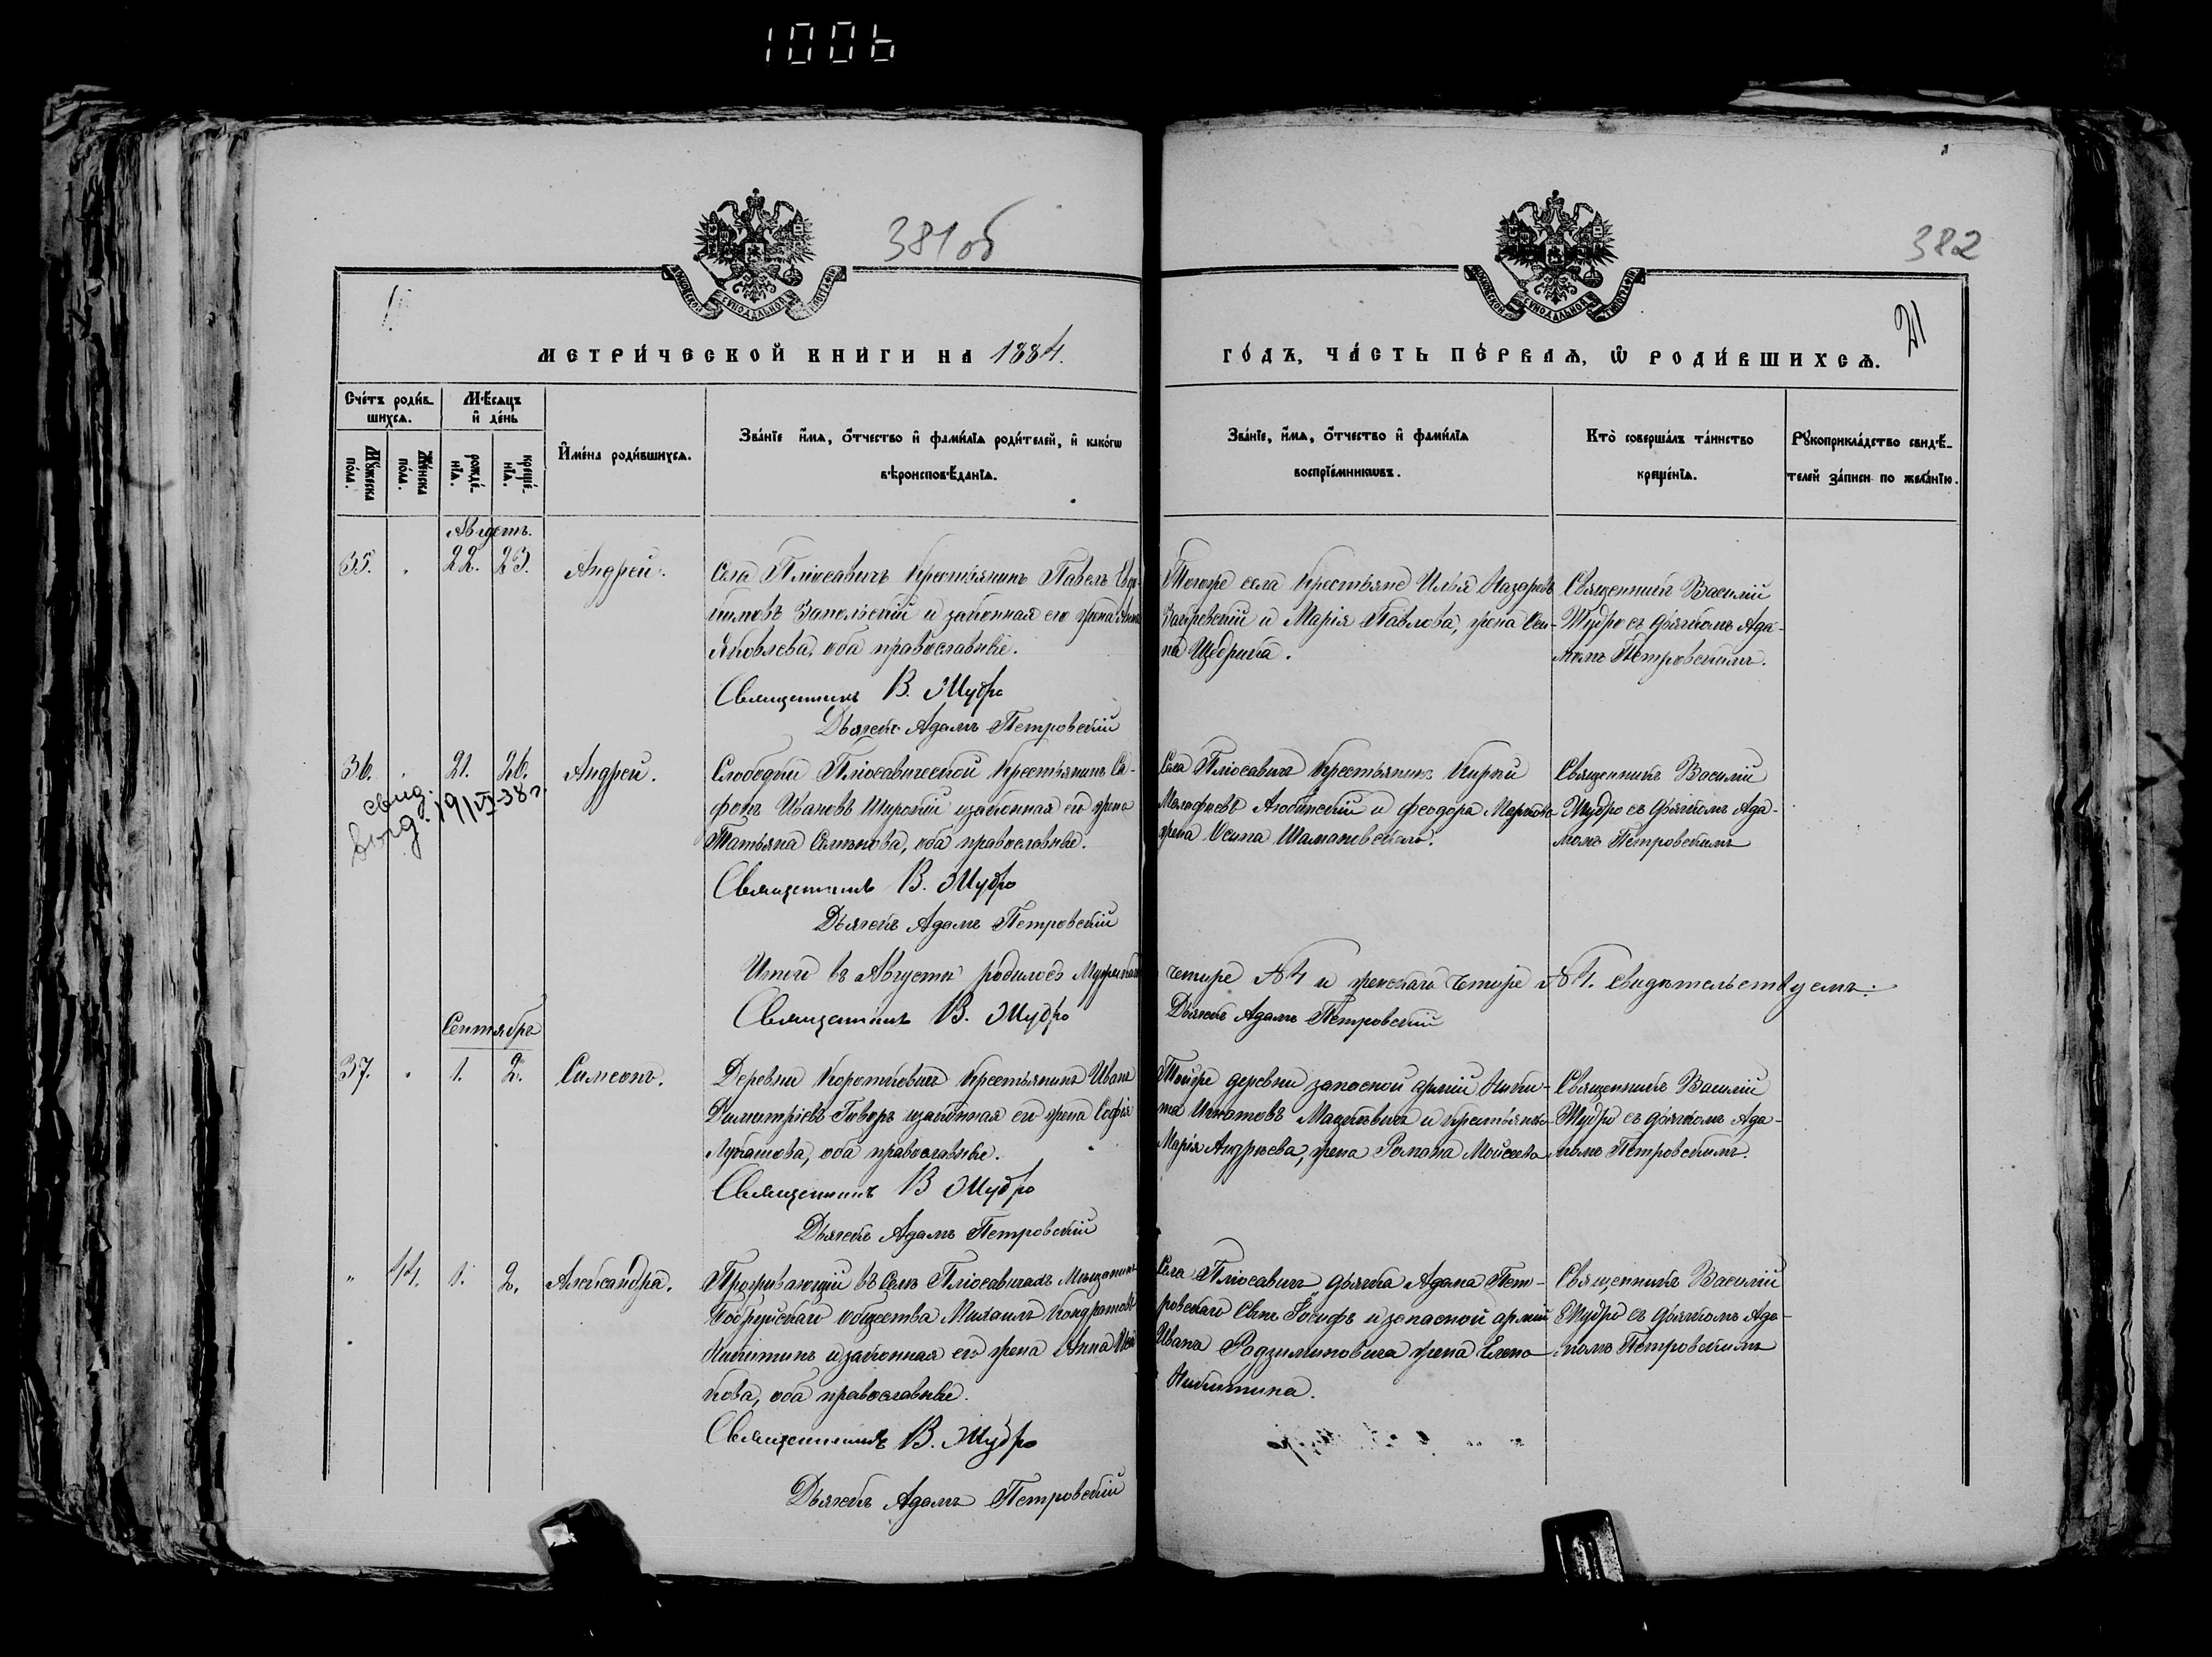 1006
381 об
382
21
МЕТРИ́ЧЕСКОЙ КНИ́ГИ НА 1884.
ГО́ДЪ, ЧА́СТЬ ПЕ́РВАЯ, Ѡ҆ РОДИ́ВШИХСЯ.
Сче́тъ роди́в-
шихся.
Мѣ́сяцъ
и҆ де́нь
Му́жеска
по́ла.
Же́нска
по́ла.
рожде́-
нїя.
креще́-
нїя.
И҆мена̀ роди́вшихся.
Зва́нїе и҆́мя, ѻ҆́тчество и҆ фами́лїя роди́телей, и҆ како́гѡ
вѣроисповѣ́данїя.
Зва́нїе, и҆́мя, ѻ҆́тчество и҆ фами́лїя
воспрїе́мникѡвъ.
Кто̀ соверша́лъ та́инство
креще́нїя.
Рꙋкоприкла́дство свидѣ́-
телей за́писи по жела́нїю.
Августъ.
35. 22. 23. Андрей.
Села Плюсавичъ Крестьянинъ Павелъ
кимовъ Запольскій и законная его жена Анна
Яковлева, оба православные.
Священникъ В. Мудро
Дьячекъ Адамъ Петровскій
Тогоже села Крестьяне Илья Назаровъ
Загревскій и Марія Павлова, жена Оси-
па Щебрика.
Священникъ Василій
Мудро съ дьячкомъ Ада-
момъ Петровскимъ.
36. 21. 26. Андрей.
свид.
выд. 19/VI-38 г.
Слободки Плюсавической Крестьянинъ Са-
фонъ Ивановъ Широкій и законная его жена
Татьяна Семенова, оба православные.
Священникъ В. Мудро
Дьячекъ Адамъ Петровскій
Села Плюсавичъ Крестьянинъ Кирпей
Малафеевъ Любинскій и Феодора Маркова
жена Осипа Шамановскаго.
Священникъ Василій
Мудро съ дьячкомъ Ада-
момъ Петровскимъ
Итого въ Августѣ родилось Мужескаго четыре № 4 и женскаго Четыре № 4. Свидѣтельствуемъ:
Священникъ В. Мудро
Дьячекъ Адамъ Петровскій
Сентябрь
37. 1. 2. Симеонъ.
Деревни Коротковичъ Крестьянинъ Иванъ
Димитріевъ Говоръ и законная его жена Софія
Лукашова, оба православные.
Священникъ В Мудро
Дьячекъ Адамъ Петровскій
Тойже деревни запасной арміи Ники-
та Игнатовъ Мацкевичъ и крестьянка
Марія Андреева, жена Романа Моисеева
Священникъ Василій
Мудро съ дьячкомъ Ада-
момъ Петровскимъ.
" 44. 1. 2. Александра.
Проживающій въ Селѣ Плюсавичахъ Мещанинъ
Бобруйскаго общества Михаилъ Кондратовъ
Никитинъ и законная его жена Анна
кова, оба православные.
Священникъ В. Мудро
Дьячекъ Адамъ Петровскій
Села Плюсавичъ дьячка Адама Пет-
ровскаго Сынъ Іосифъ и запасной арміи
Ивана Радзиминовича жена Елена
Никитина.
Священникъ Василій
Мудро съ дьячкомъ Ада-
момъ Петровскимъ